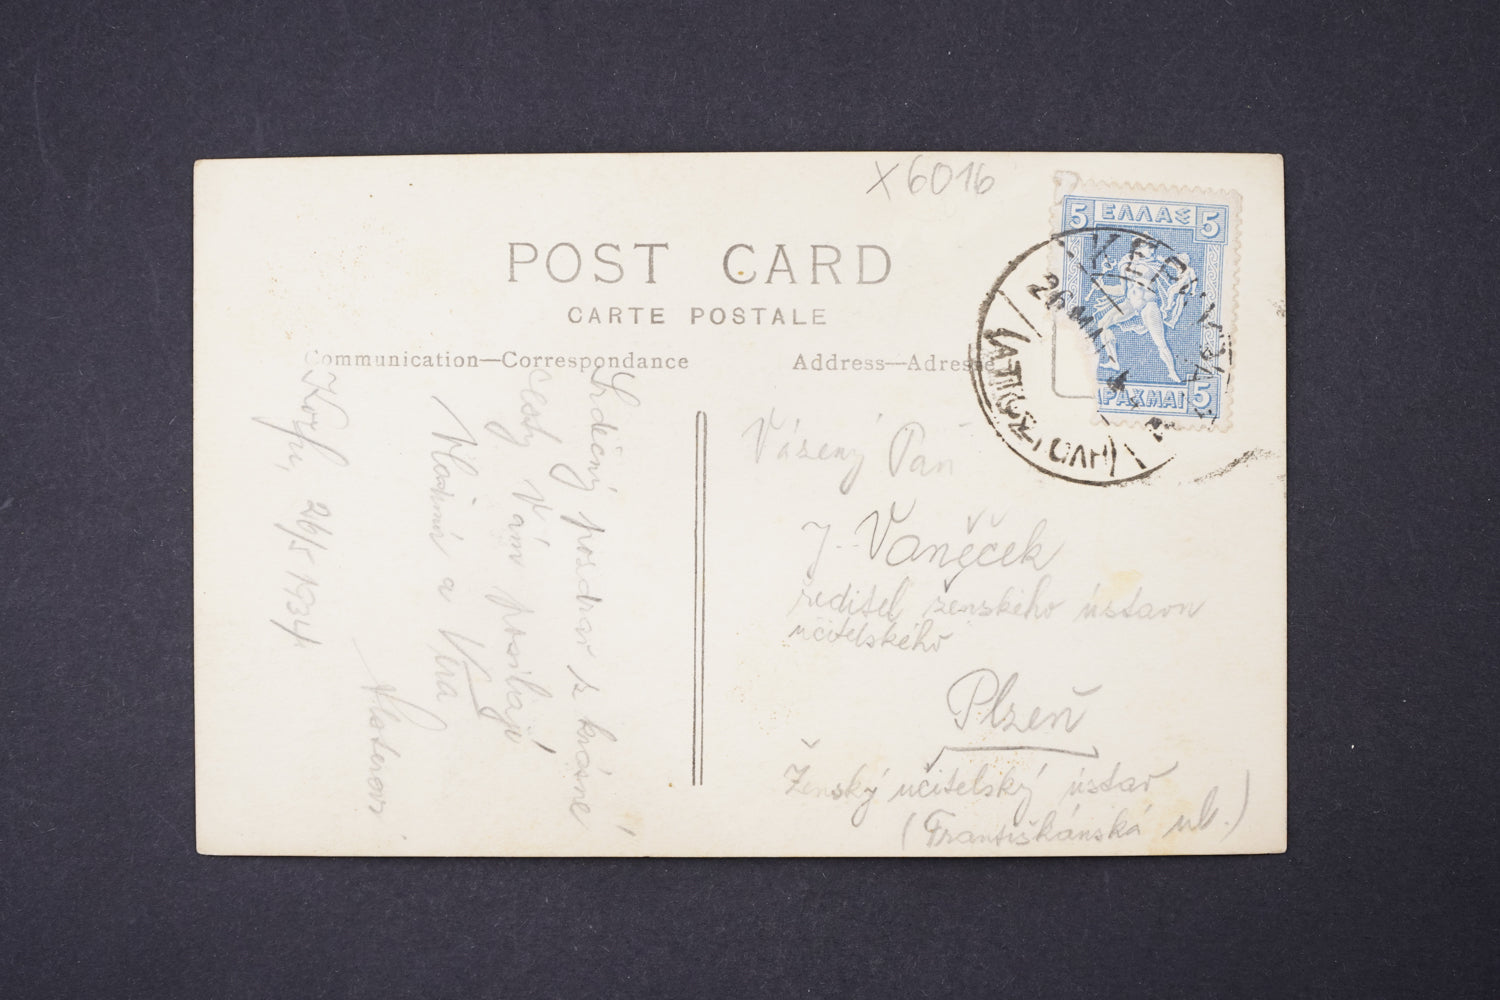 X6016
5 ΕΛΛΑΣ 5
ΔΡΑΧΜΑΙ 5
26 ΜΑ
POST CARD
CARTE POSTALE
Communication—Correspondance
Address—Adresse
Srdečný pozdrav z krásné
cesty Vám posílají
Vladimír a Věra
Korfu, 26/5 1934
Vážený Pán
J. Vaněček
ředitel ženského ústavu
učitelského
Plzeň
Ženský učitelský ústav
(Františkánská ul.)